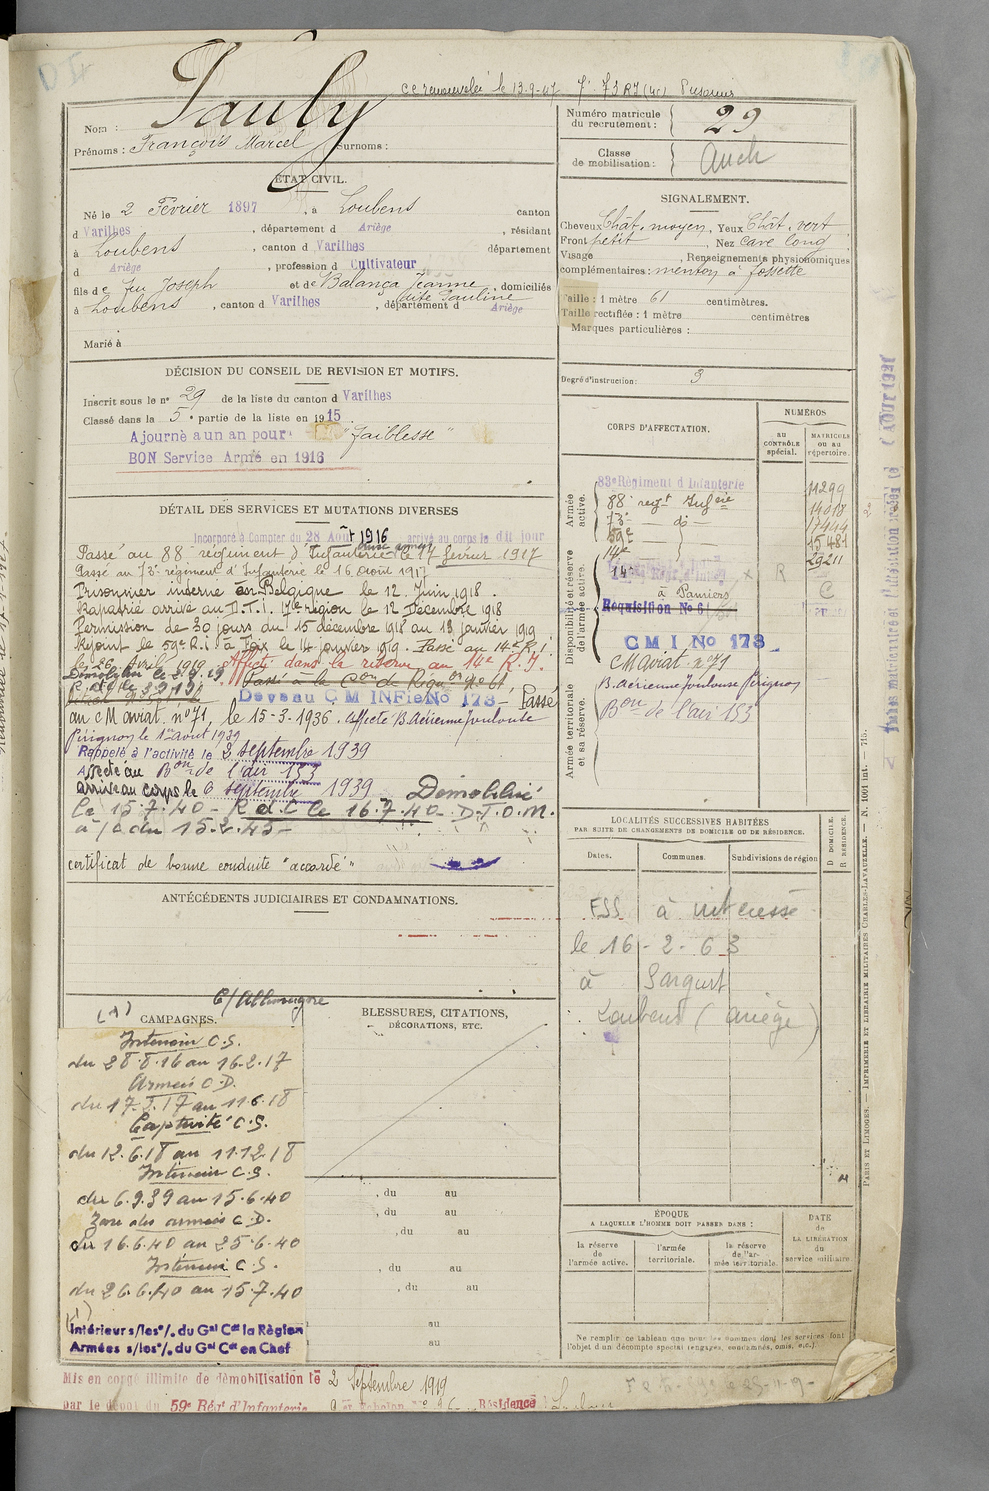 Pauly
Nom :
Prénoms : François Marcel
Surnoms :
Numéro matricule
du recrutement :
29
Classe
de mobilisation :
Auch
ÉTAT CIVIL.
Né le 2 Février 1897, à Loubens canton
d Varilhes, département d Ariège, résidant
à Loubens, canton d Varilhes département
d Ariège, profession d Cultivateur
fils de feu Joseph et de Balança Jeanne, domiciliés
dite Pauline
à Loubens, canton d Varilhes, département d Ariège
Marié à
SIGNALEMENT.
Cheveux Chât. moyen, Yeux Chât. vert
Front petit, Nez cave long
Visage, Renseignements physionomiques
complémentaires : menton à fossette
Taille : 1 mètre 61 centimètres.
Taille rectifiée : 1 mètre centimètres
Marques particulières :
Degré d'instruction : 3
DÉCISION DU CONSEIL DE REVISION ET MOTIFS.
Inscrit sous le n° 29 de la liste du canton d Varilhes
Classé dans la 5e partie de la liste en 1915
Ajourné a un an pour "faiblesse"
BON Service Armé en 1916
CORPS D'AFFECTATION.
NUMÉROS
AU CONTRÔLE spécial.
MATRICULE ou au répertoire.
Armée active.
83e Régiment d'Infanterie 11299
88e regt Infrie 14018
73e — do — 17444
59e 15481
14e 29211
Disponibilité et réserve de l'armée active.
à Pamiers
R
C
Réquisition No 6
CMI No 173
CM aviat. n°71
B. Aérienne Toulouse Pérignon
Bon de l'air 153
Armée territoriale et sa réserve.
DÉTAIL DES SERVICES ET MUTATIONS DIVERSES
Incorporé à Compter du 28 Août 1916 arrivé au corps le dit jour
Passé au 88e régiment d'Infanterie le 17 février 1917
Passé au 73e régiment d'Infanterie le 16 août 1917
Prisonnier interné en Belgique le 12 Juin 1918.
Rapatrié arrivé au D.T.I. 17e région le 12 Décembre 1918
Permission de 30 jours du 15 décembre 1918 au 13 janvier 1919
Rejoint le 59e R.I à Foix le 14 janvier 1919. Passé au 14e R.I.
le 26 Avril 1919. Affecté dans la réserve au 14e R.I.
Démobilisé le 2.9.19
Deveau C M INFie No 173 – Passé
au CM aviat. n°71, le 15-3-1936. Affecté B. Aérienne Toulouse
Pérignon le 1er Août 1939
Rappelé à l'activité le 2 septembre 1939
Affecté au Bon de l'air 153
arrivé au corps le 6 septembre 1939 Démobilisé
le 15-7-40 – R.d.C le 16.7.40 – D.T.O.M.
à /c du 15-2-45 –
certificat de bonne conduite "accordé"
LOCALITÉS SUCCESSIVES HABITÉES
PAR SUITE DE CHANGEMENTS DE DOMICILE OU DE RÉSIDENCE.
Dates.
Communes.
Subdivisions de région
D DOMICILE.
R RÉSIDENCE.
ESS à intéressé
le 16-2-63
à
Loubens (Ariège)
ANTÉCÉDENTS JUDICIAIRES ET CONDAMNATIONS.
C/Allemagne
(1)
CAMPAGNES.
Intérieur C.S.
du 28.8.16 au 16.2.17
Armées C.D.
du 17.2.17 au 11.6.18
Captivité C.S.
du 12.6.18 au 11.12.18
Intérieur C.S.
du 6.9.39 au 15.6.40
Zone des armées C.D.
du 16.6.40 au 25.6.40
Intérieur C.S.
du 26.6.40 au 15.7.40
(1)
Intérieur s/les o/. du Gal Cdt la Région
Armées s/les o/. du Gal Cdt en Chef
BLESSURES, CITATIONS,
DÉCORATIONS, ETC.
, du au
, du au
, du au
, du au
, du au
au
au
ÉPOQUE
A LAQUELLE L'HOMME DOIT PASSER DANS :
la réserve de l'armée active.
l'armée territoriale.
la réserve de l'armée territoriale.
DATE DE LA LIBÉRATION du service militaire
Ne remplir ce tableau que pour les hommes dont les services font
l'objet d'un décompte spécial (engagés, condamnés, omis, etc.).
Mis en congé illimité de démobilisation le 2 Septembre 1919
par le dépôt du 59e Régt d'Infanterie Résidence
PARIS ET LIMOGES. — IMPRIMERIE ET LIBRAIRIE MILITAIRES CHARLES-LAVAUZELLE. — N. 1001 Int. — 715.